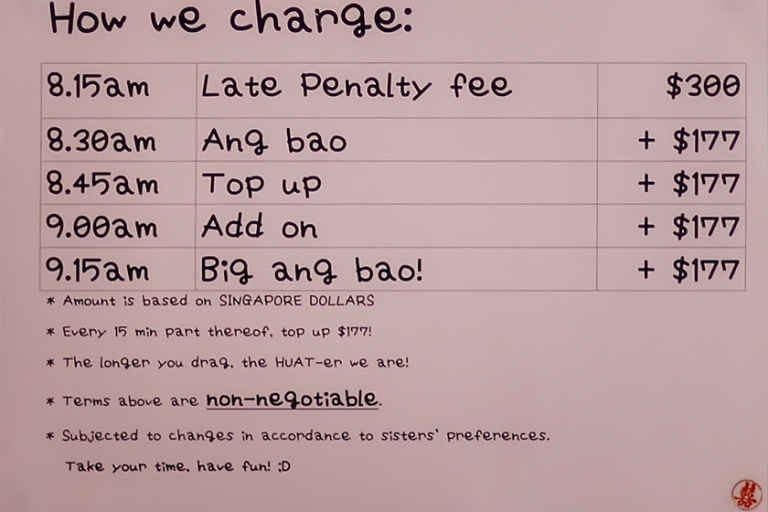 How we change:
8.15am Late Penalty fee $300
8.30am Ang bao + $177
8.45am Top up + $177
9.00am Add on + $177
9.15am Big ang bao! + $177
* Amount is based on SINGAPORE DOLLARS
* Every 15 min part thereof, top up $177!
* The longer you drag, the HUAT-er we are!
* Terms above are non-negotiable.
* Subjected to changes in accordance to sisters' preferences.
Take your time, have fun! ;D
囍